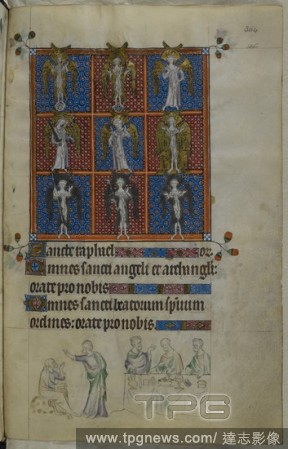 304
Sancte raphael or
Omnes sancti angeli et archangeli:
orate pro nobis
Omnes sancti beatorum spirituum
ordines: orate pro nobis
TPG
www.tpgnews.com/ 達志影像